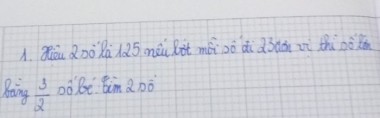 1. Hiệu 2 số là 125. nếu bớt mỗi số đi 23 đơn vị thì số lớn
bằng 3/2 số bé. Tìm 2 số